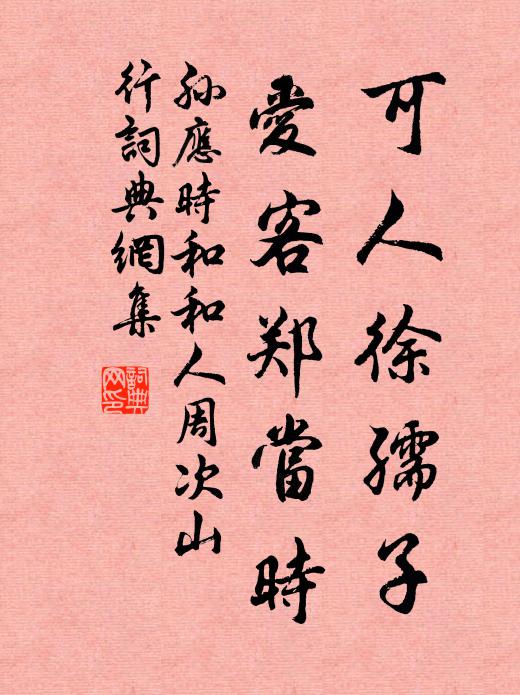 可人徐孺子
愛客郑當時
孙應時和和人周次山
行詞典網集
詞典
网印